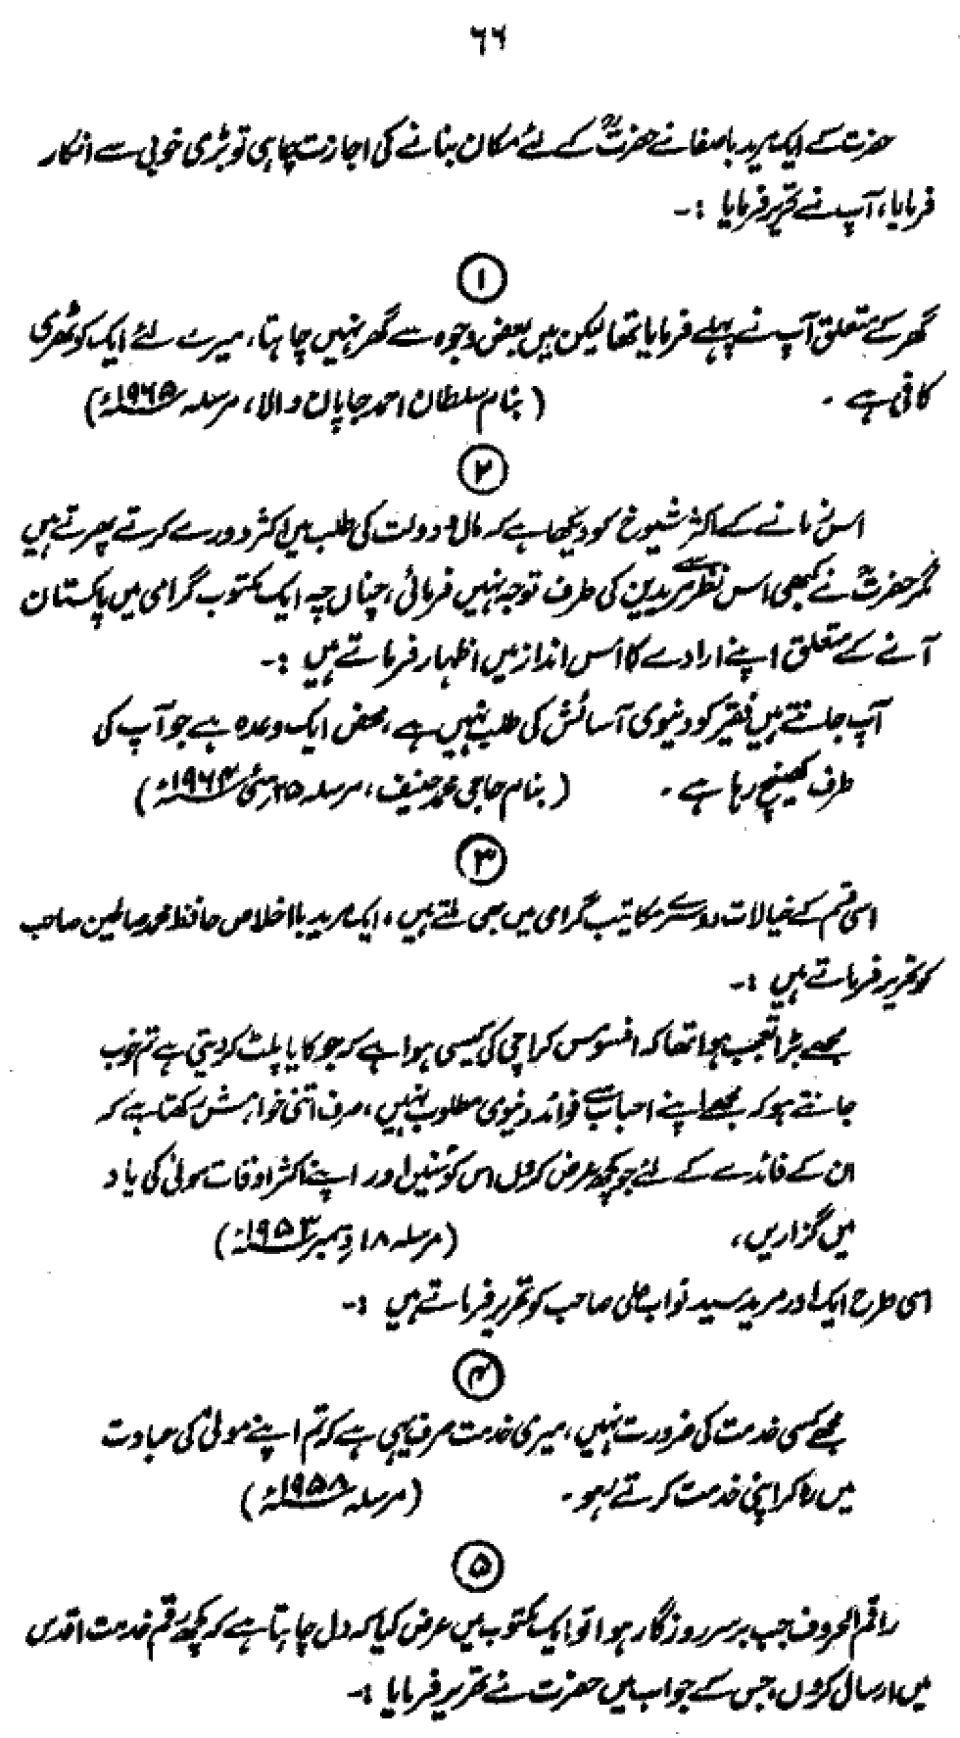 ۶۶
حضرت کے ایک مرید باصفا نے حضرتؒ کے لئے مکان بنانے کی اجازت چاہی تو بڑی خوبی سے انکار
فرمایا، آپ نے تحریر فرمایا :۔
۱
گھر کے متعلق آپ نے پہلے فرمایا تھا لیکن میں بعض وجوہ سے گھر نہیں چاہتا، میرے لئے ایک کوٹھری
کافی ہے ۔ (بنام سلطان احمد جاپان والا، مرسلہ ۱۹۶۵ء)
۲
اس زمانے کے اکثر شیوخ کو دیکھا ہے کہ مال و دولت کی طلب میں اکثر دورے کرتے پھرتے ہیں
مگر حضرتؒ نے کبھی اس نظر سے مریدین کی طرف توجہ نہیں فرمائی، چناں چہ ایک مکتوب گرامی میں پاکستان
آنے کے متعلق اپنے ارادے کا اس انداز میں اظہار فرماتے ہیں :۔
آپ جانتے ہیں فقیر کو دنیوی آسائش کی طلب نہیں ہے، محض ایک وعدہ ہے جو آپ کی
طرف کھینچ رہا ہے ۔ (بنام حاجی محمد حنیف، مرسلہ ۲۵ مئی ۱۹۶۴ء)
۳
اسی قسم کے خیالات دوسرے مکاتیب گرامی میں بھی ملتے ہیں، ایک مرید بااخلاص حافظ محمد صالحین صاحب
کو تحریر فرماتے ہیں :۔
مجھے بڑا تعجب ہوا تھا کہ افسوس کراچی کی کیسی ہوا ہے کہ جو کایا پلٹ کر دیتی ہے تم خوب
جانتے ہو کہ مجھے اپنے احباب سے فوائد دنیوی مطلوب نہیں، صرف اتنی خواہش رکھتا ہے کہ
ان کے فائدے کے لئے جو کچھ عرض کروں اس کو سنیں اور اپنے اکثر اوقات مولیٰ کی یاد
میں گزاریں، (مرسلہ ۱۸ دسمبر ۱۹۵۳ء)
اسی طرح ایک اور مرید سید نواب علی صاحب کو تحریر فرماتے ہیں :۔
۴
مجھے کسی خدمت کی ضرورت نہیں، میری خدمت صرف یہی ہے کہ تم اپنے مولیٰ کی عبادت
میں رہ کر اپنی خدمت کرتے رہو ۔ (مرسلہ ۱۹۵۸ء)
۵
راقم الحروف جب برسر روزگار ہوا تو ایک مکتوب میں عرض کیا کہ دل چاہتا ہے کہ کچھ رقم خدمت اقدس
میں ارسال کروں، جس کے جواب میں حضرت نے تحریر فرمایا :۔